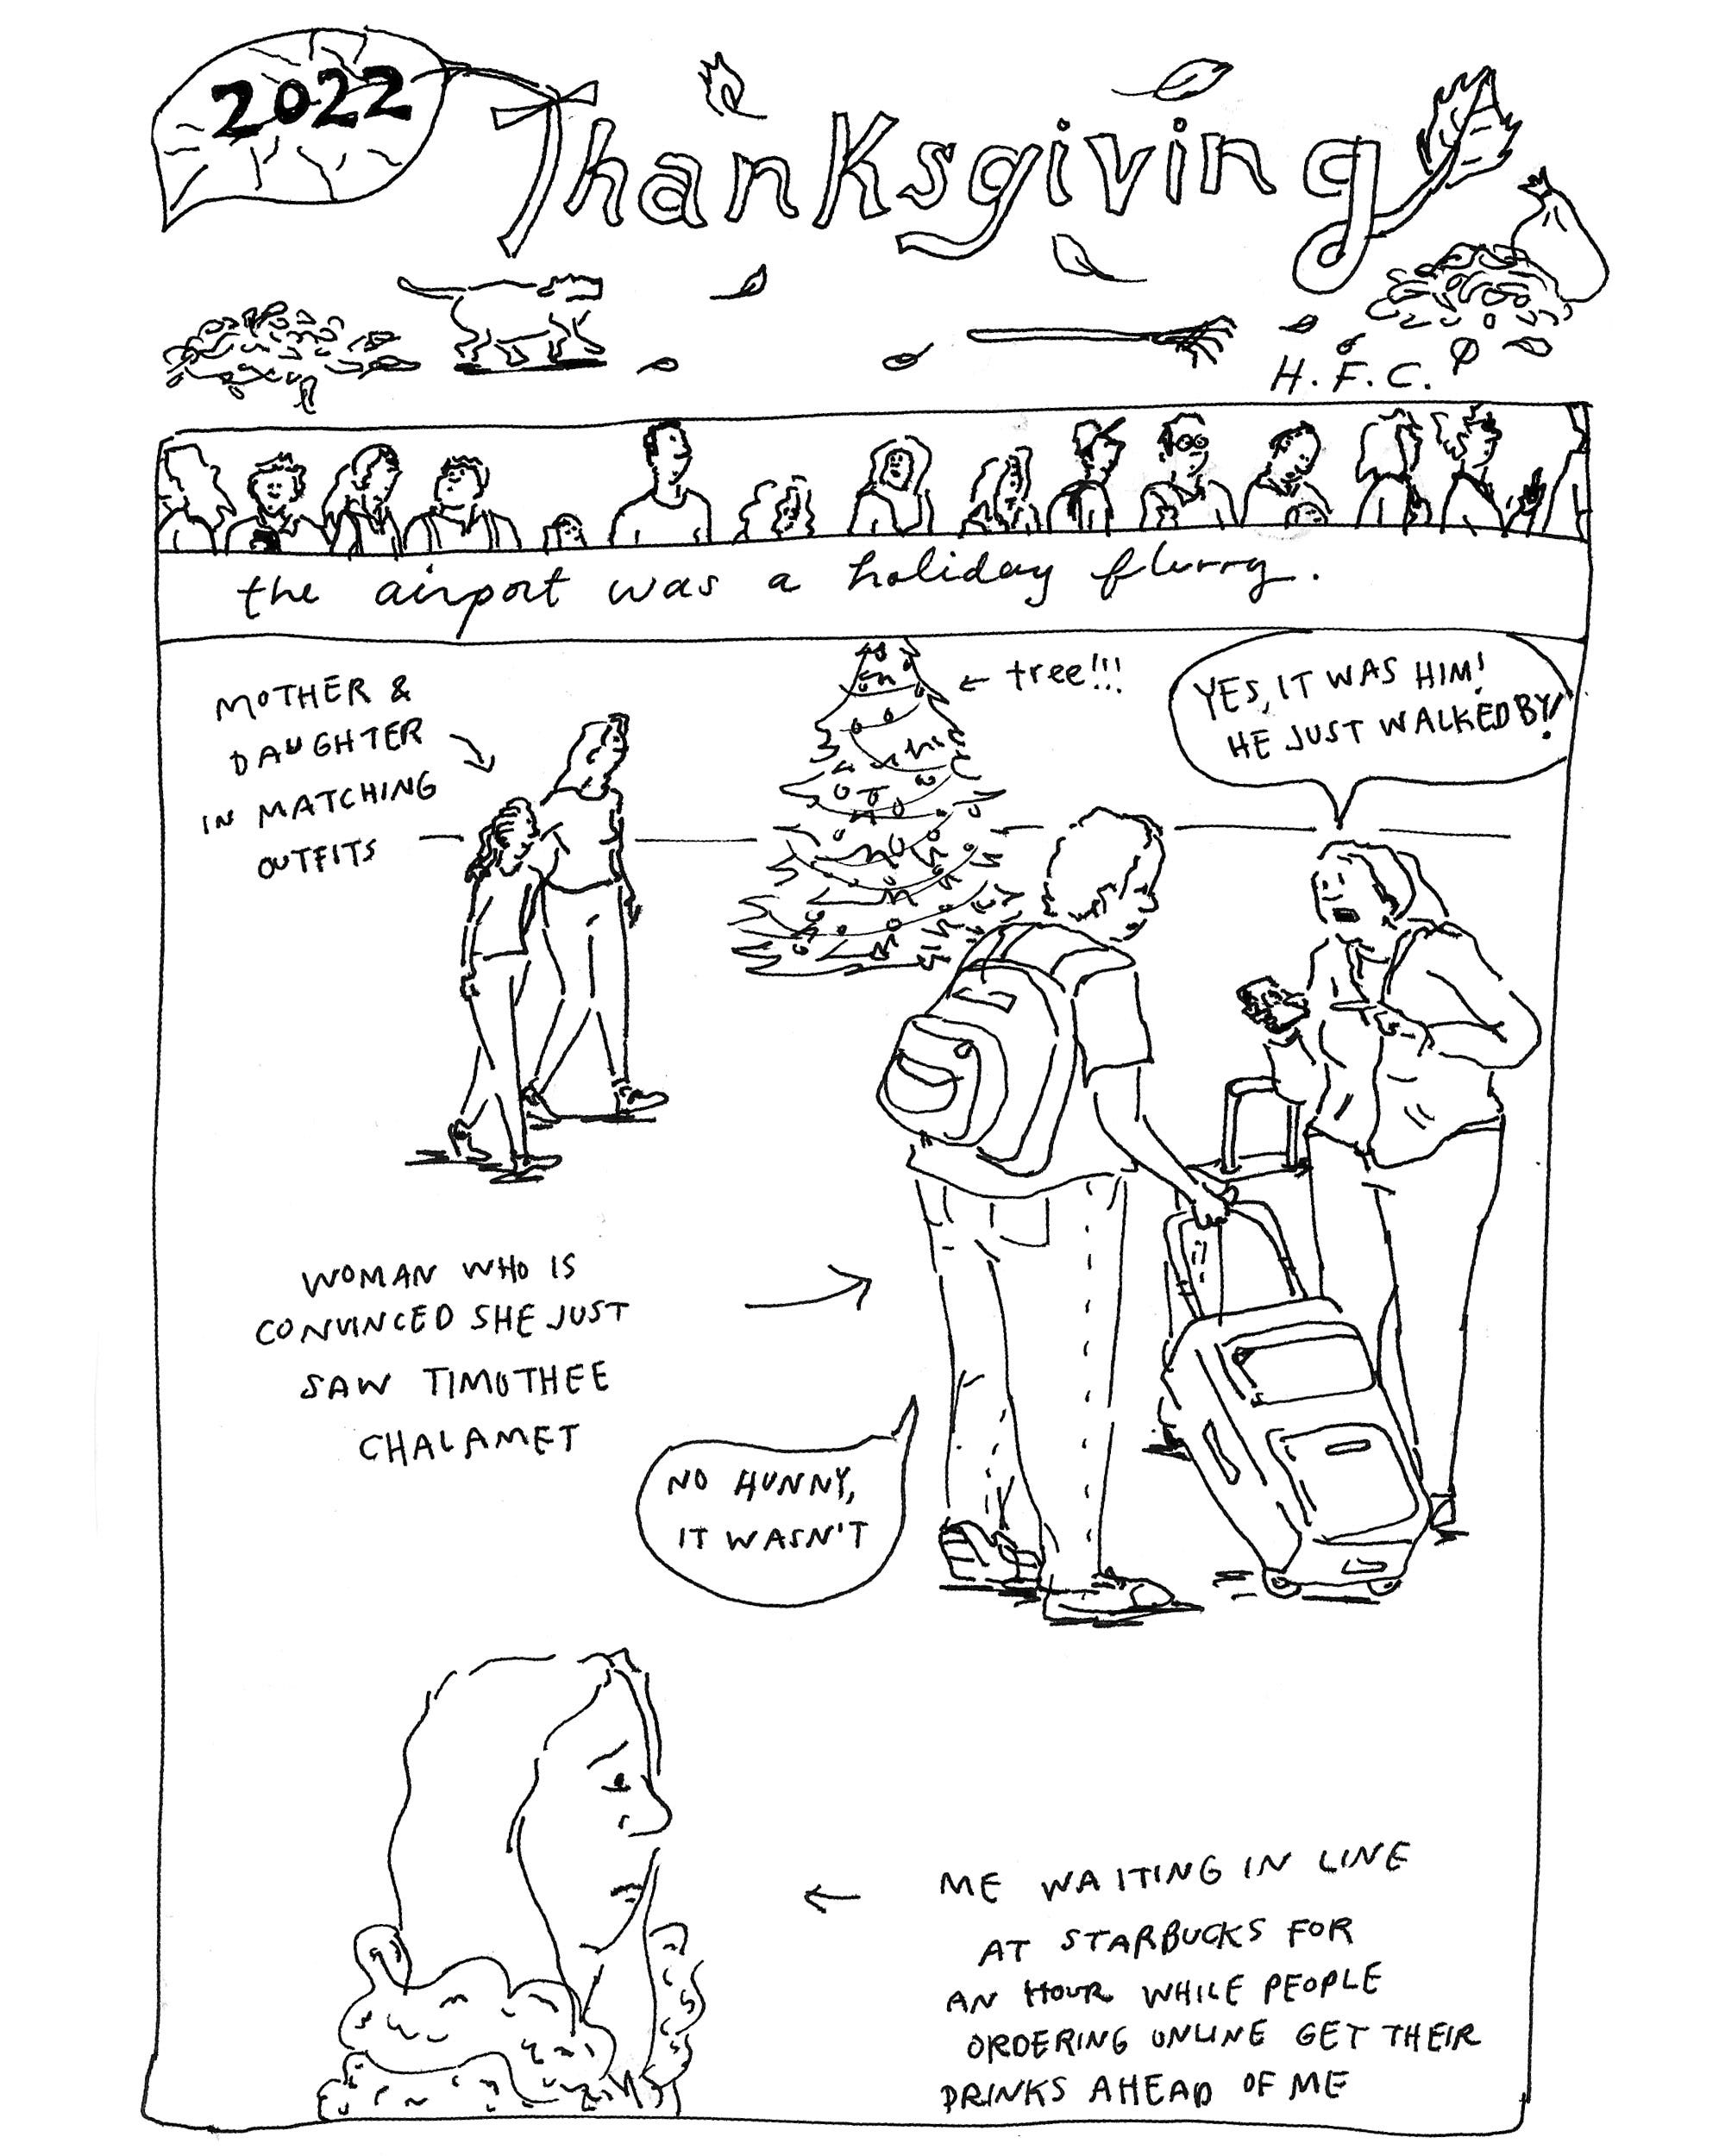 2022
Thanksgiving
H.F.C.
the airport was a holiday flurry.
MOTHER &
DAUGHTER
IN MATCHING
OUTFITS
← tree!!!
YES, IT WAS HIM!
HE JUST WALKED BY!
WOMAN WHO IS
CONVINCED SHE JUST
SAW TIMOTHEE
CHALAMET
NO HUNNY,
IT WASN'T
ME WAITING IN LINE
AT STARBUCKS FOR
AN HOUR WHILE PEOPLE
ORDERING ONLINE GET THEIR
DRINKS AHEAD OF ME